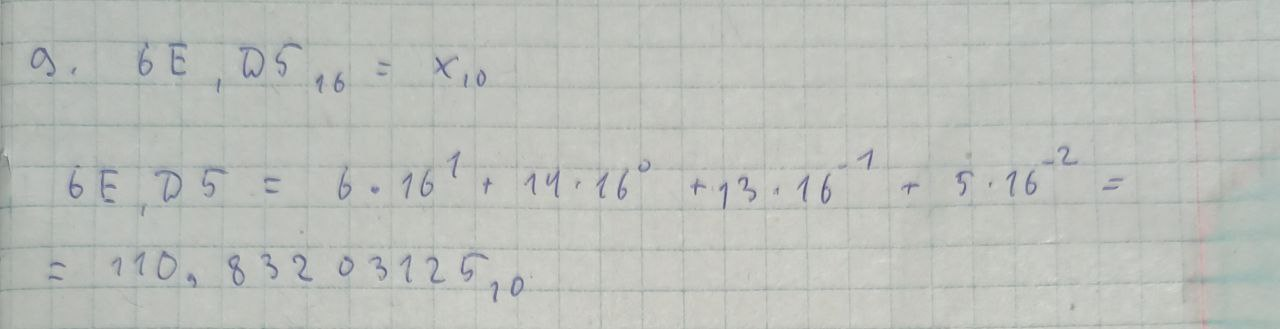 9. 6E,D5₁₆ = x₁₀
6E,D5 = 6·16¹ + 14·16⁰ + 13·16⁻¹ + 5·16⁻² =
= 110,83203125₁₀